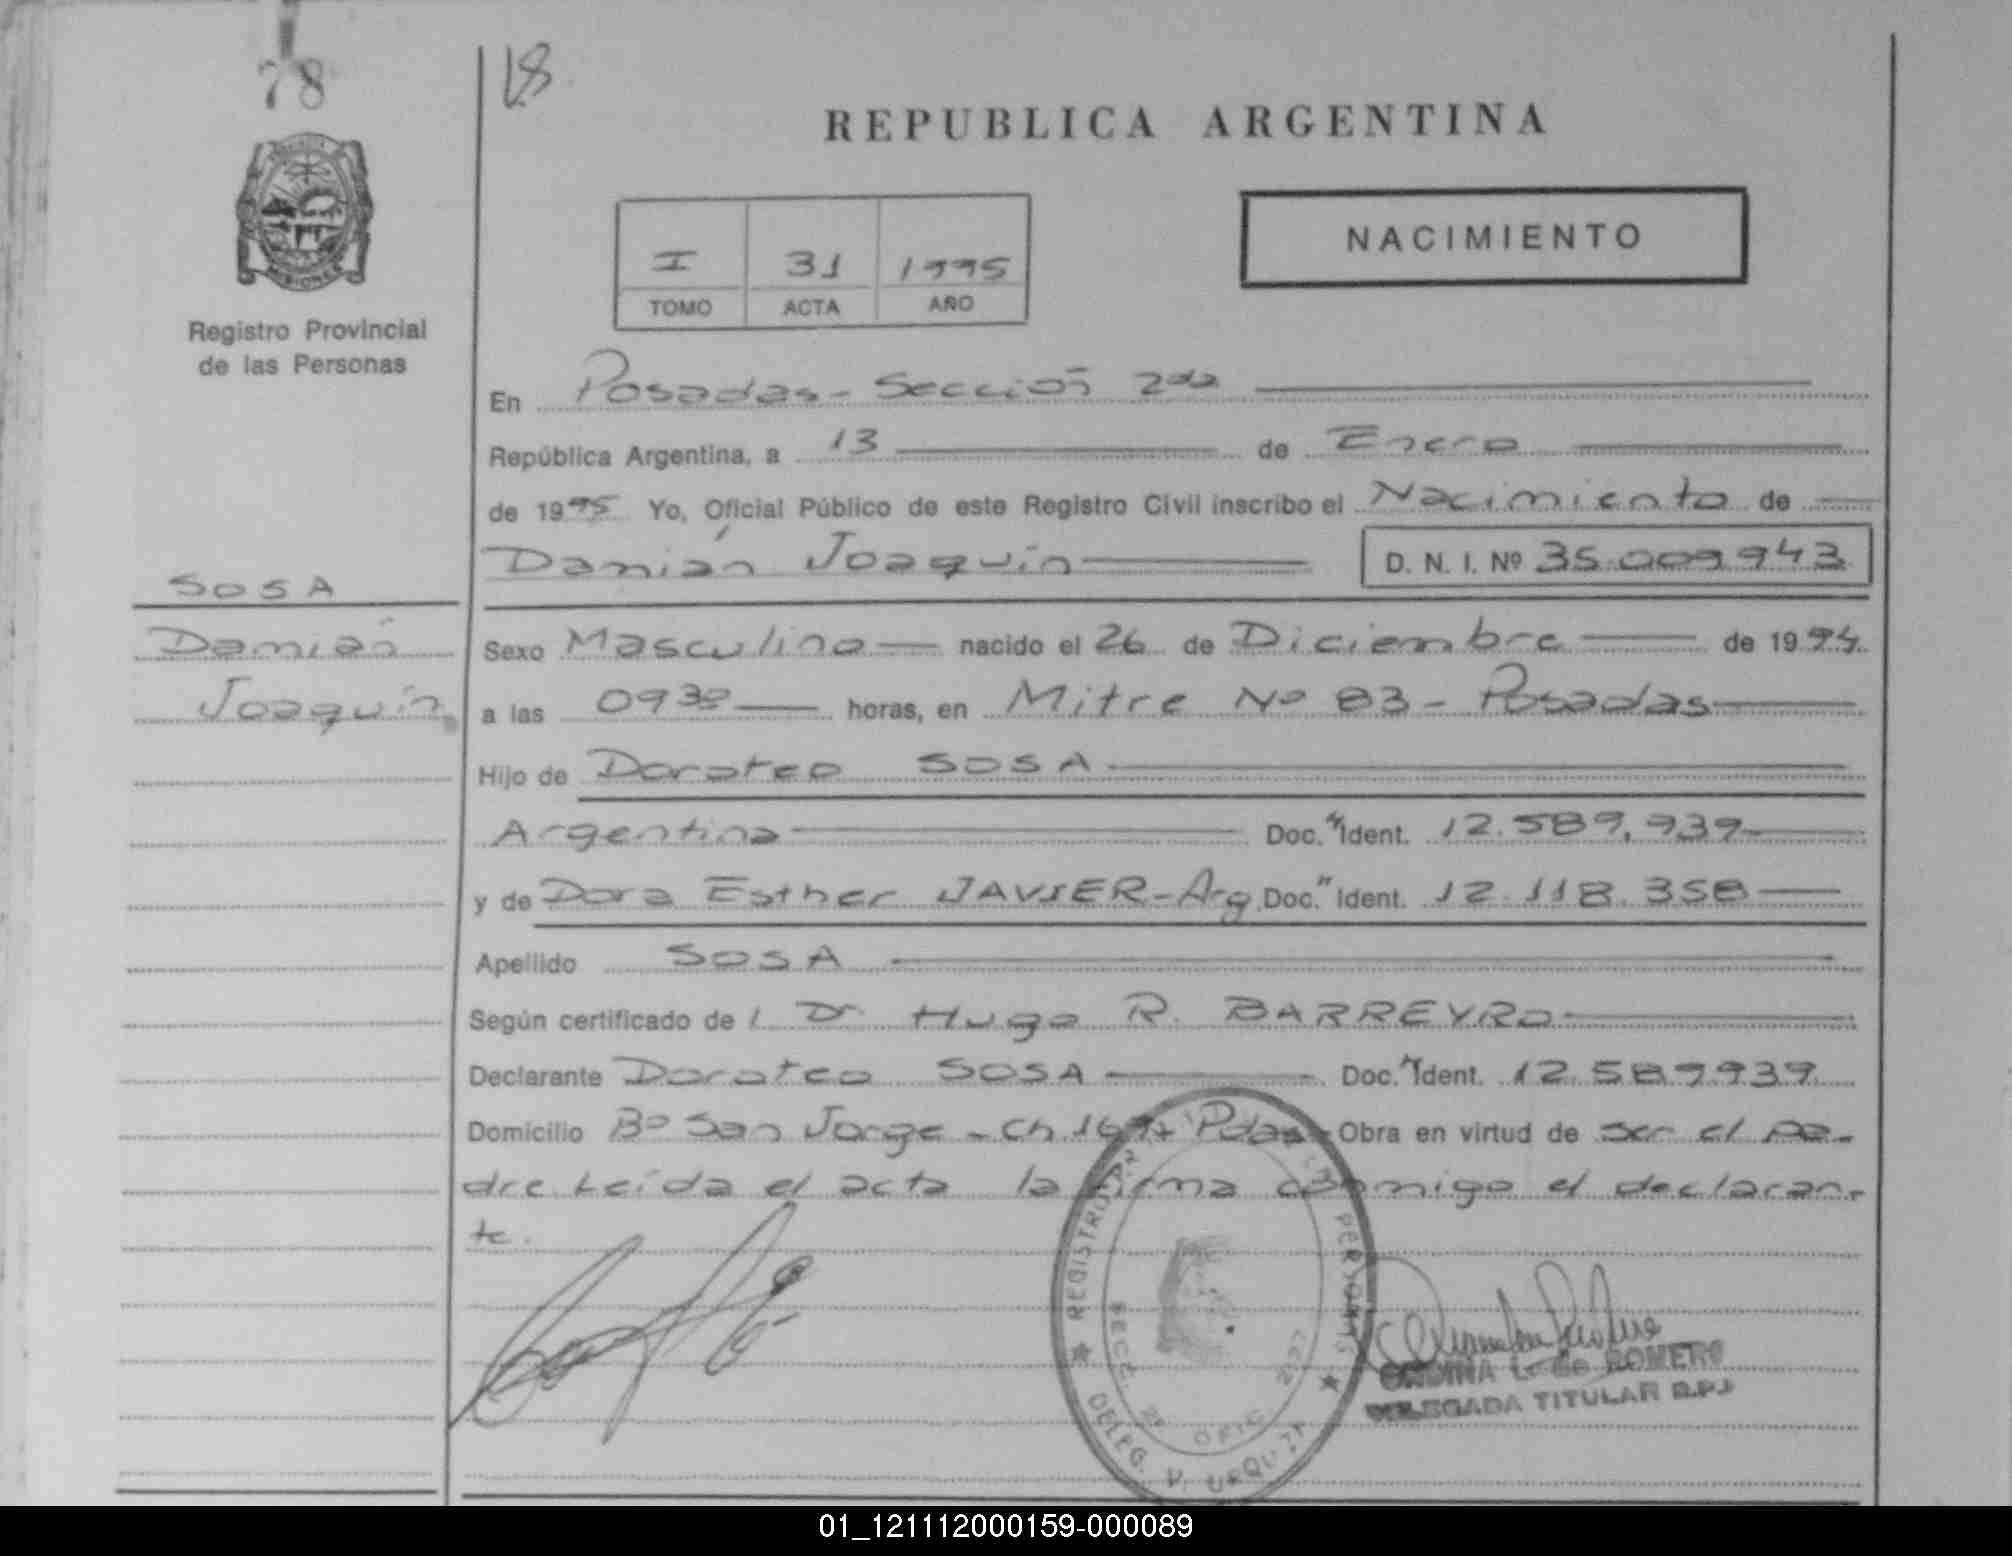 78
18
REPUBLICA ARGENTINA
MISIONES
Registro Provincial
de las Personas
I 31 1995
TOMO ACTA AÑO
NACIMIENTO
En Posadas - Sección 2da
República Argentina, a 13 de Enero
de 1995 Yo, Oficial Público de este Registro Civil inscribo el Nacimiento de
Damián Joaquín D. N. I. Nº 35.009.943
SOSA
Damián
Joaquín
Sexo Masculino nacido el 26 de Diciembre de 1994.
a las 0930 horas, en Mitre Nº 83 - Posadas
Hijo de Doroteo SOSA
Argentina Doc. Ident. 12.589.939
y de Dora Esther JAVIER - Arg. Doc. Ident. 12.118.358
Apellido SOSA
Según certificado de l Dr. Hugo R. BARREYRO
Declarante Doroteo SOSA Doc. Ident. 12.589.939
Domicilio Bº San Jorge - Ch. Pdas - Obra en virtud de ser el pa-
dre. Leída el acta la firma conmigo el declaran-
te.
REGISTRO PERSONAS
SECC. 2º OFIC.
DELEG. V. URQUIZA
L. de ROMERO
DELEGADA TITULAR R.P.P
01_121112000159-000089